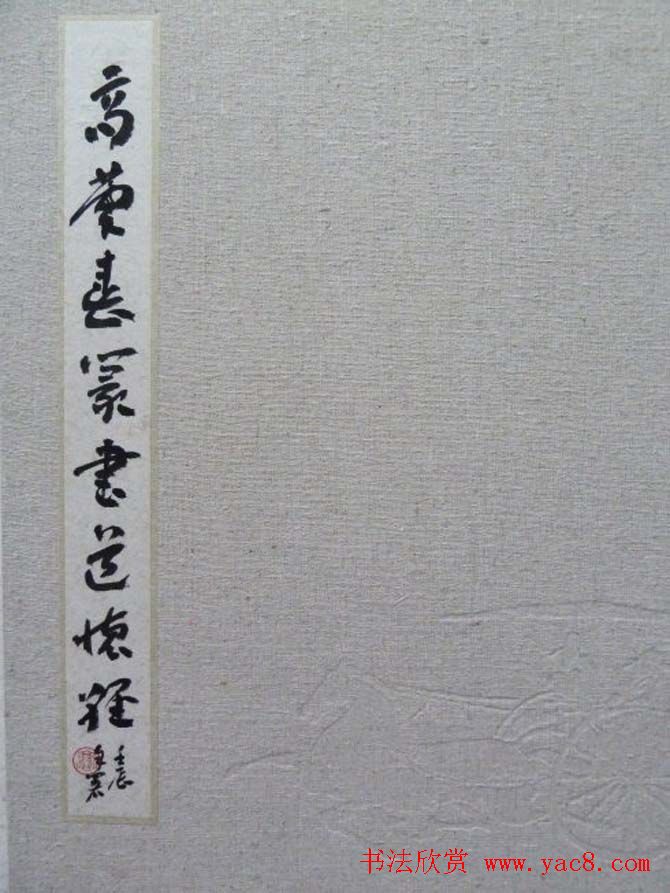 高慶春篆書道德經
壬辰
自署
书法欣赏 www.yac8.com